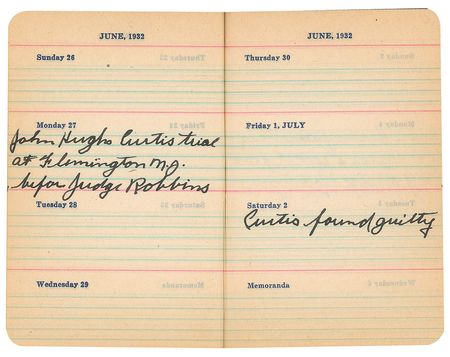 JUNE, 1932
Sunday 26
Monday 27
John Hughs Curtis trial
at Flemington N.J.
befor Judge Robbins
Tuesday 28
Wednesday 29
JUNE, 1932
Thursday 30
Friday 1, JULY
Saturday 2
Curtis found guilty
Memoranda